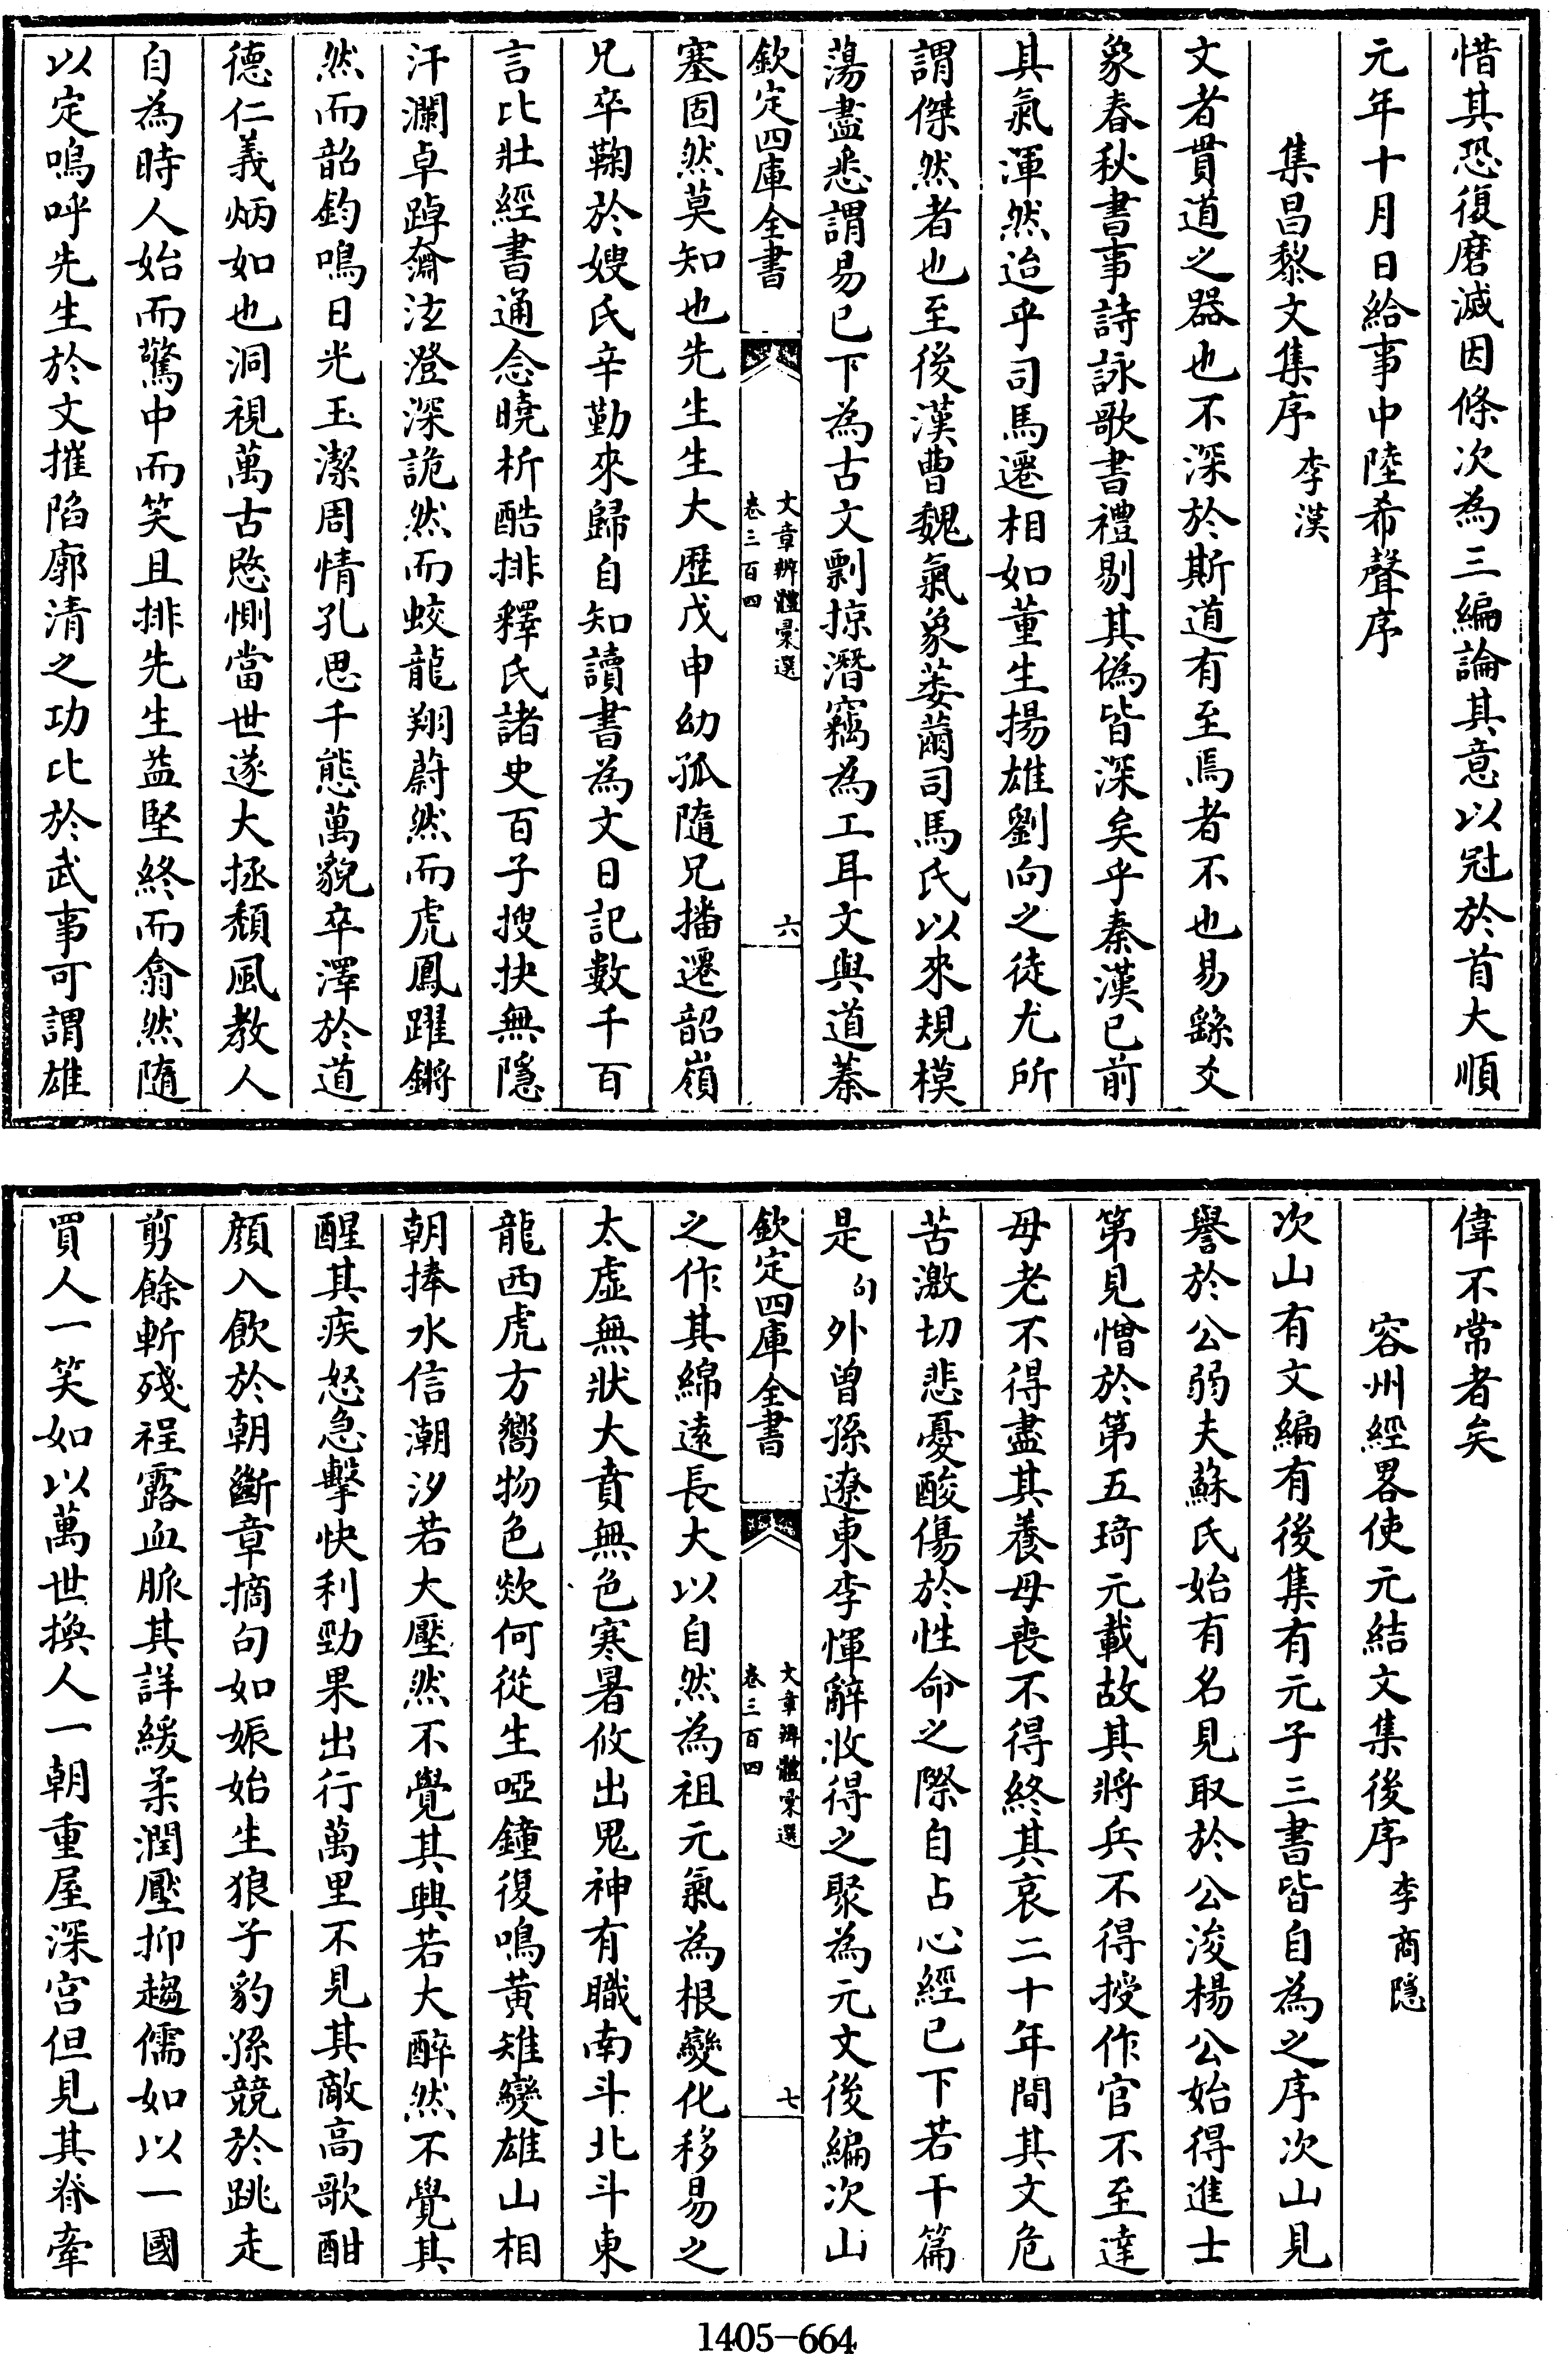 惜其恐復磨滅因條次為三編論其意以冠於首大順
元年十月日給事中陸希聲序
集昌黎文集序 李漢
文者貫道之器也不深於斯道有至焉者不也易繇爻
象春秋書事詩詠歌書禮剔其偽皆深矣乎秦漢已前
其氣渾然迨乎司馬遷相如董生揚雄劉向之徒尤所
謂傑然者也至後漢曹魏氣象萎薾司馬氏以來規模
蕩盡悉謂易已下為古文剽掠潛竊為工耳文與道蓁
欽定四庫全書
文章辨體彙選
卷三百四
六
塞固然莫知也先生生大歷戊申幼孤隨兄播遷韶嶺
兄卒鞠於嫂氏辛勤來歸自知讀書為文日記數千百
言比壯經書通念曉析酷排釋氏諸史百子搜抉無隱
汗瀾卓踔奫泫澄深詭然而蛟龍翔蔚然而虎鳳躍鏘
然而韶鈞鳴日光玉潔周情孔思千態萬貌卒澤於道
德仁義炳如也洞視萬古愍惻當世遂大拯頹風教人
自為時人始而驚中而笑且排先生益堅終而翕然隨
以定嗚呼先生於文摧陷廓清之功比於武事可謂雄
偉不常者矣
容州經畧使元結文集後序 李商隱
次山有文編有後集有元子三書皆自為之序次山見
譽於公弱夫蘇氏始有名見取於公浚楊公始得進士
第見憎於第五琦元載故其將兵不得授作官不至達
母老不得盡其養母喪不得終其哀二十年間其文危
苦激切悲憂酸傷於性命之際自占心經已下若干篇
是句外曾孫遼東李惲辭收得之聚為元文後編次山
欽定四庫全書
文章辨體彙選
卷三百四
七
之作其綿遠長大以自然為祖元氣為根變化移易之
太虛無狀大賁無色寒暑攸出鬼神有職南斗北斗東
龍西虎方嚮物色欻何從生啞鐘復鳴黃雉變雄山相
朝捧水信潮汐若大壓然不覺其興若大醉然不覺其
醒其疾怒急擊快利勁果出行萬里不見其敵高歌酣
顏入飲於朝斷章摘句如娠始生狼子豹孫競於跳走
剪餘斬殘程露血脈其詳緩柔潤壓抑趨儒如以一國
買人一笑如以萬世換人一朝重屋深宮但見其脊牽
1405-664